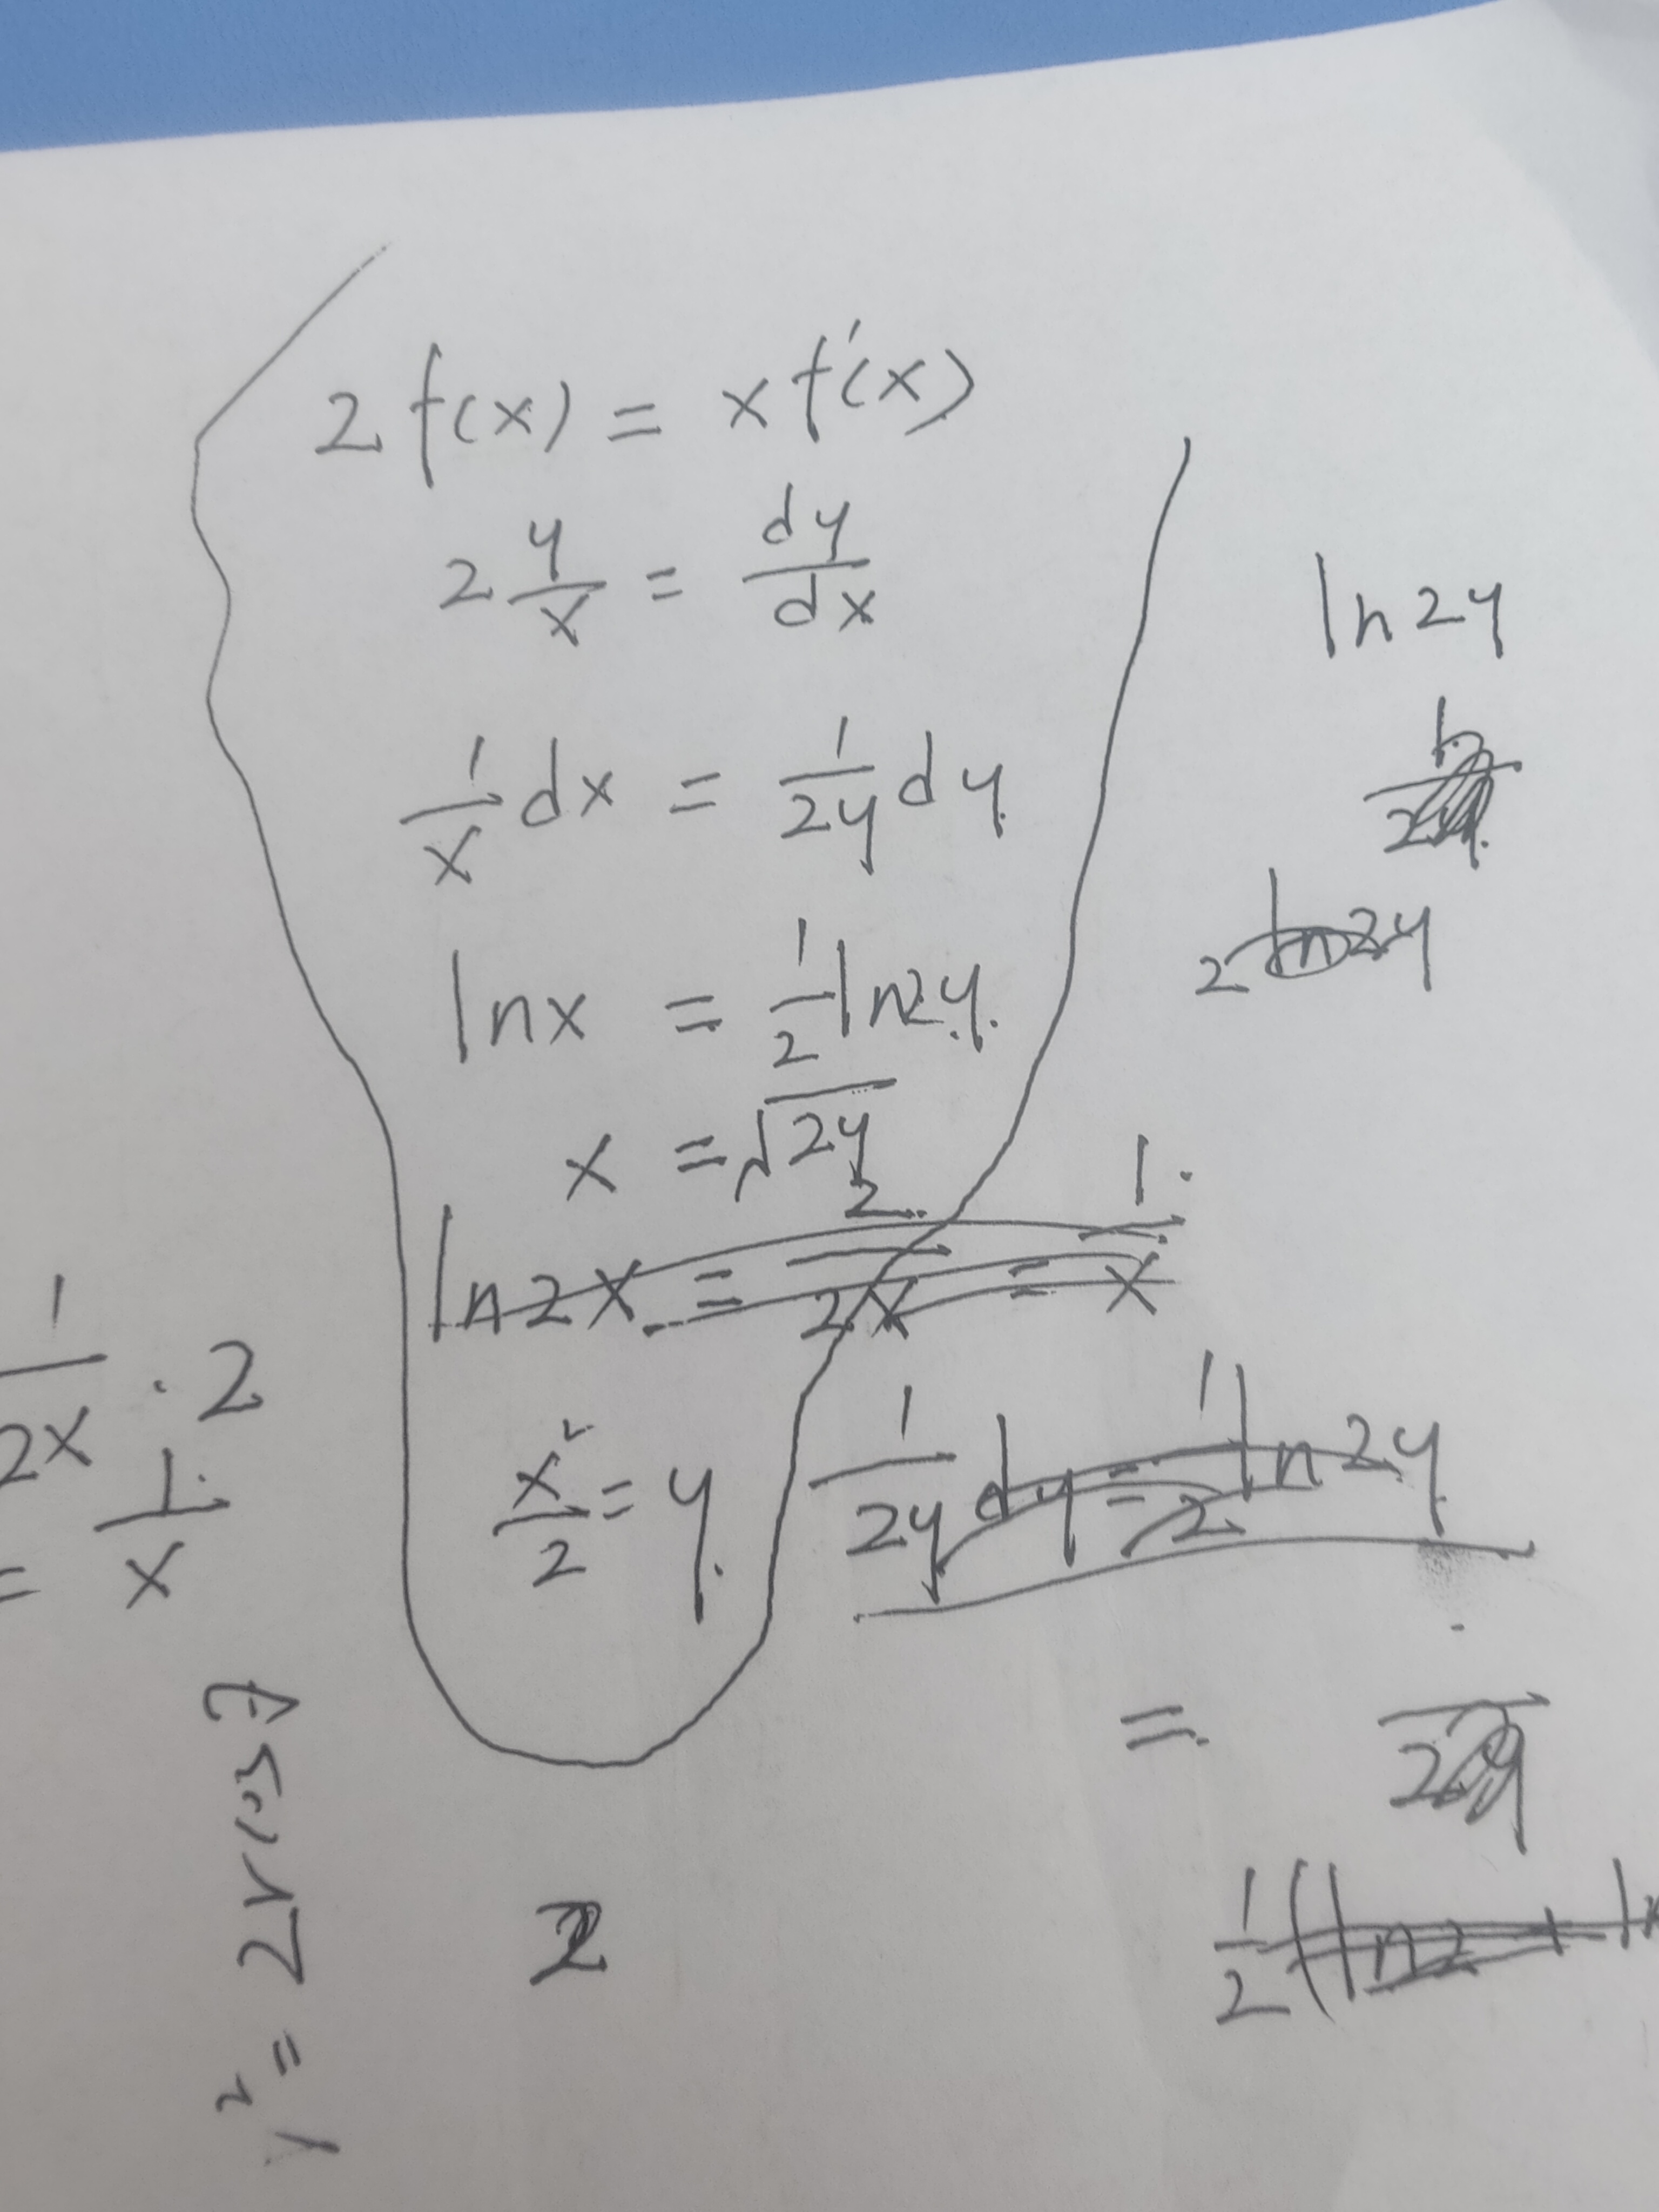 2f(x) = xf'(x)
2 y/x = dy/dx
1/x dx = 1/2y dy
lnx = 1/2 ln2y.
x = √2y
ln2x = 2/2x = 1/x
x²/2 = y.
ln2y
2 ln2y
1/2y dy = 1/2 ln2y
=
2y
1/2 (ln2
1/2x · 2
= 1/x
2